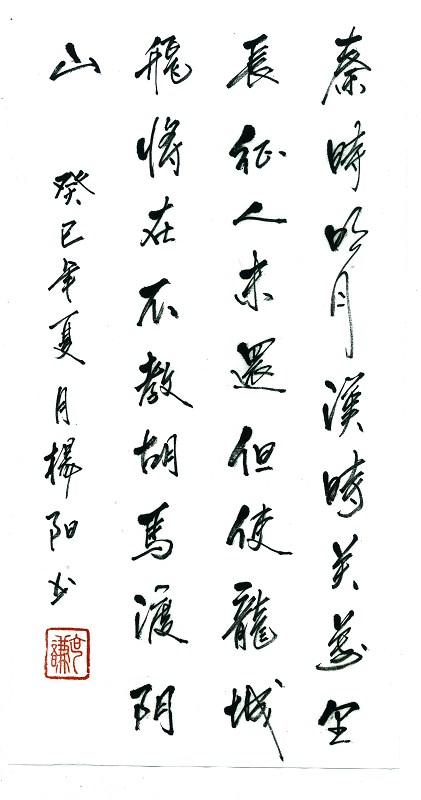 秦時明月漢時关萬里
長征人未還但使龍城
飛將在不教胡馬渡阴
山
癸巳年夏月楊阳书